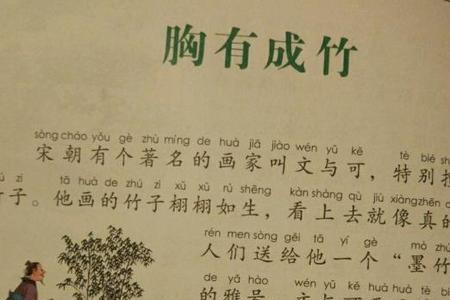 胸有成竹
sòng cháo yǒu gè zhù míng de huà jiā jiào wén yǔ kě tè bié
宋朝有个著名的画家叫文与可，特别
zi tā huà de zhú zi xǔ xǔ rú shēng kàn shàng qù jiù xiàng zhēn
子。他画的竹子栩栩如生，看上去就像真的
rén men sòng gěi tā yí gè mò
人们送给他一个“墨竹
de yǎ hào wén yǔ kě huà huà
的雅号